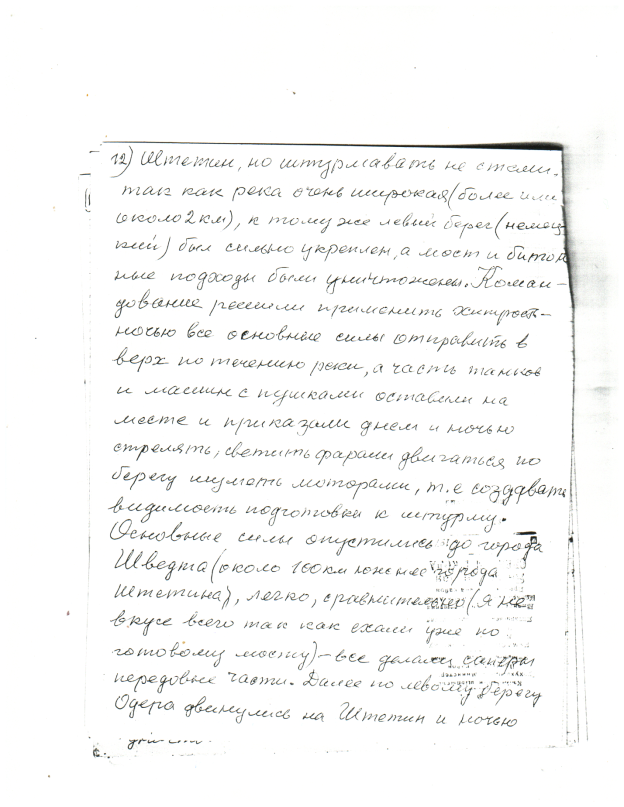 12) Штетин, но штурмавать не стали.
так как река очень широкая (более или
около 2 км), к тому же левый берег (немец
кий) был сильно укреплен, а мост и битон
ные подходы были уничтожены. Коман-
дование решили применить хитрость-
ночью все основные силы отправить в
верх по течению реки, а часть танков
и машин с пушками оставили на
месте и приказали днем и ночью
стрелять, светить фарами двигаться по
берегу шуметь моторами, т.е создавать
видимость подготовки к штурму.
Основные силы опустились до города
Шведта (около 100км южнее города
Штетина), легко, сравнительно (Я не
вкусе всего так как ехали уже по
готовому мосту) - все делали саперы
передовые части. Далее по левому берегу
Одера двинулись на Штетин и ночью